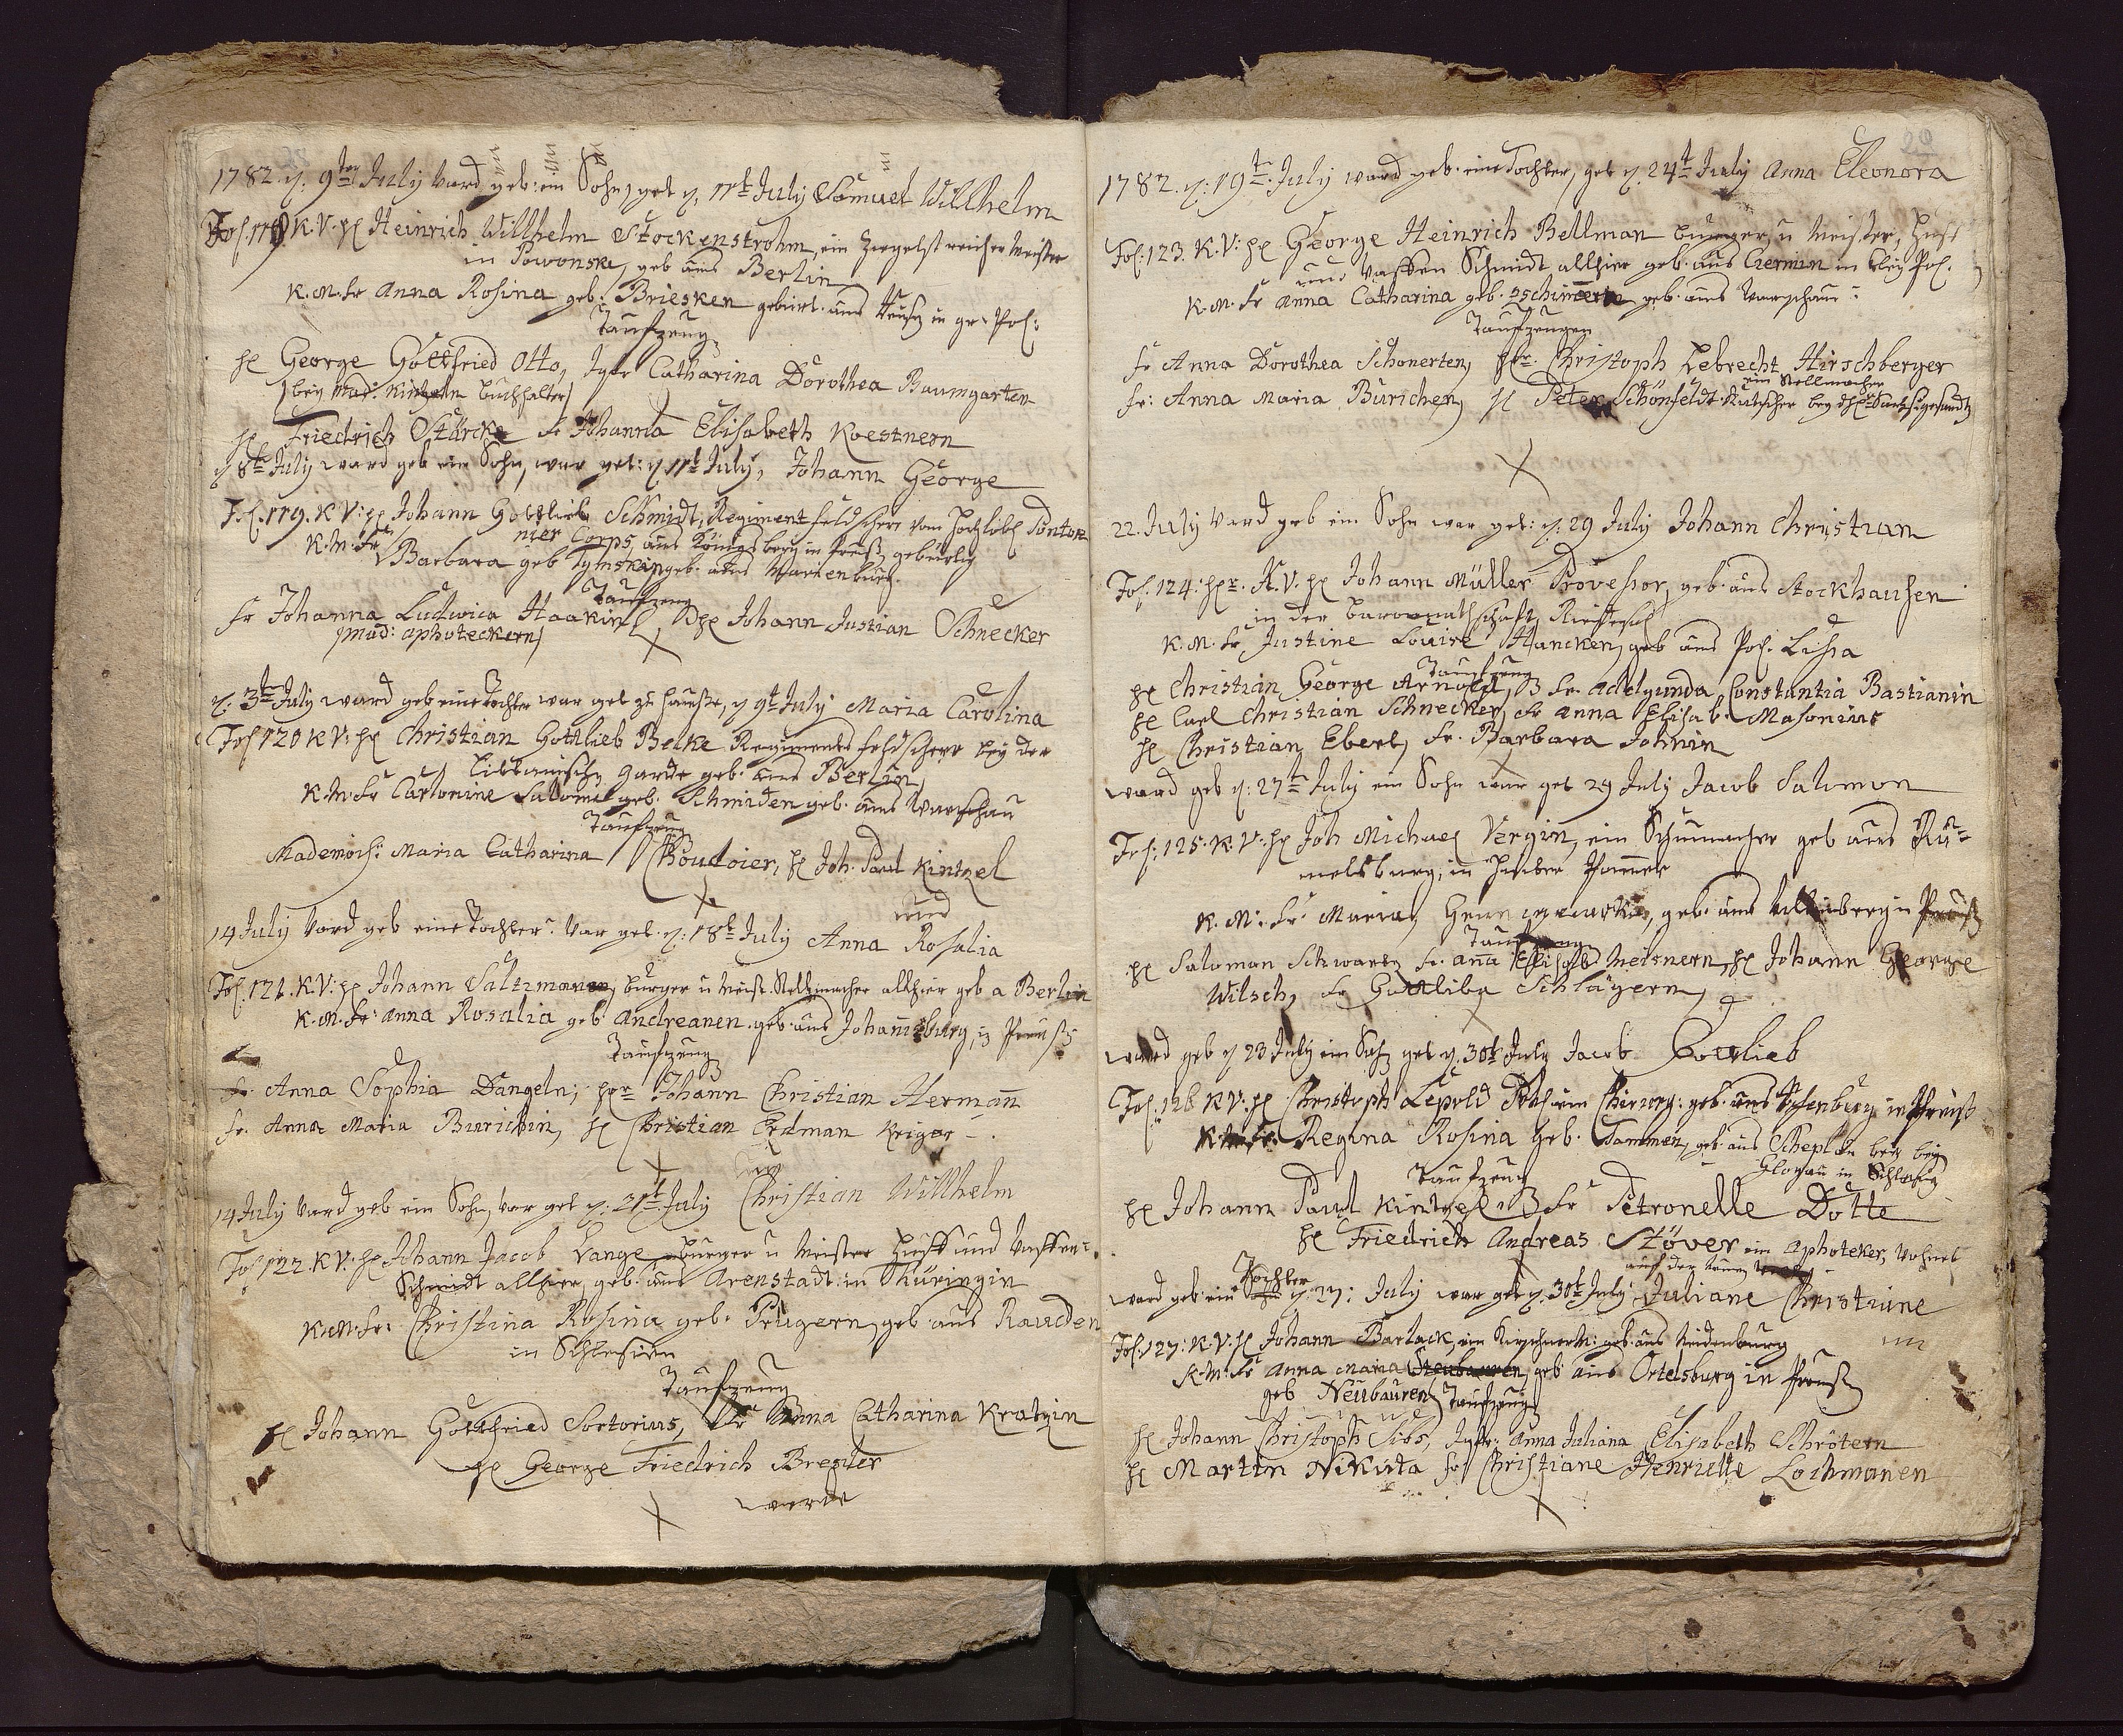 1782. d. 9ten July ward geb: ein Sohn, get d. 11t July Samuel Willhelm
Fol. 118 K.V. H Heinrich Willhelm Stockenstrohm, ein Ziegelstreicher Meister
in Powonske, geb aus Berlin
K.M. Fr Anna Rosina geb. Briesken gebirt. aus in gr. Pol:
Taufzeug
H George Gottfried Otto, Jgfr Catharina Dorothea Baumgarten
bey Mad: Kintzeln Buchhalter
H Friedrich Stärcke Fr Johanna Elisabeth Koestnern
d 8te July ward geb ein Sohn, war get: d 11t July, Johann George
Fol. 119. K V: H Johann Gottlieb Schmidt, Regiment feldscherr vom Hochlöbl Ponton
nier Corps, aus Königsberg in Preuß gebürtig
K.M. Fr Barbara geb Tymskin geb. aus Marienburg.
Taufzeug
Fr Johanna Ludwica Haakin, H Johann Justian Schnecker
Mad: aphoteckern
d. 3te July ward geb eine Tochter war get zu Hause, d 9t July Maria Carolina
Fol 120 K V: H Christian Gottlieb Belke Regiments feldscherr bey der
Littauischen Garde geb. aus Berlin
K.M. Fr Carlorine Salome geb. Schmiden geb. aus Warschau
Taufzeug
Mademois: Maria Catharina Choudoier, H Joh. Paul Kintzel
X
14 July Ward geb eine Tochter: War get. d: 18t July Anna und Rosalia
Fol. 121. K.V: H Johann Saltzmanen, Bürger u Meist. Stellmacher allhier geb a Berlin
K.M. Fr: Anna Rosalia geb Andreanen geb. aus Johannsburg, in Preuß
Taufzeug
Fr. Anna Sophia Dangeln; Hr Johann Christian Hermann
Fr. Anna Maria Burichin, H Christian Erdman Kriger
X
14 July Ward geb ein Sohn, War get d: 21t July Christian Willhelm
Fol 122. K V: H Johann Jacob Lange Bürger u Meister Huff und Waffen
Schmidt allhier, geb. aus Arenstadt in Thüringin
K.M. Fr: Christina Rosina geb. Prugern, geb aus Rauden
in Schlesien
Taufzeug
H Johann Gottfried Sortorius, Fr Anna Catharina Kratzin
H George Friedrich Bresler
X
20
1782. d: 19te July ward geb. eine Tochter, get d. 24t July Anna Eleonora
Fol: 123. K.V: H George Heinrich Bellman Bürger u Meister, Huf
und Waffen Schmidt allhier geb. aus Czermin in Pol.
K.M. Fr Anna Catharina geb. geb. aus Warschau
Taufzeugen
Fr Anna Dorothea Schonerten, Hr. Christoph Lebrecht Hirschberger
ein Stellmacher
Fr: Anna Maria Burichen, H Peter Schönfeldt Kutscher bey
X
22. July Ward geb ein Sohn war get: d. 29 July Johann Christian
Fol. 124: K.V. H Johann Müller Provesor, geb. aus Stockhausen
in der Riedesel
K.M. Fr Justine Louise Hancken, geb aus Pol. Lissa
Taufzeug
H Christian George Arnold, Fr. Adelgunda Constantia Bastianin
H Carl Christian Schnecker, Fr Anna Elisab. Masonius
H Christian Ebert, Fr. Barbara Johnin
X
ward geb d: 27te July ein Sohn war get 29 July Jacob Salomon
Fol: 125. K.V. H Joh Michael Vergin, ein Schumacher geb aus Ru
melsburg, in Hinter Pommer
K.M: Fr: Maria, geb. aus in Preuß
Taufzeug
H Saloman Schwartz Fr. Anna Elisab. Meisnern, H Johann George
Wilsch, Fr Gottliba Schlägern,
X
ward geb d 23 July ein Sohn get d. 30t July Jacob Gottlieb
Fol: 126 K V: H Christoph Lepold ein Chirurg: geb. aus in Preuß
K.M. Fr Regina Rosina geb. Tammen, geb aus Scheplan bey
Glogau in Schlesig
Taufzeug
H Johann Paul Kintzel Fr Petronelle Dotte
H Friedrich Andreas Stöver ein aphoteker, Wohnet
auf der
Tochter
ward geb. ein d. 27: July war get d. 30t July Juliane Christiane
Fol. 127: K.V. H Johann Barlack, ein Kirschner M: geb aus Neidenburg
K.M: Fr Anna Maria Steubauren, geb aus Ortelsburg in Preuß
geb Neubauren, Taufzeug
H Johann Christoph Sibs, Jgfr: Anna Juliana Elisabeth Schrötern
H Martin Nikuta Fr Christiane Henriette Lochmanen
X